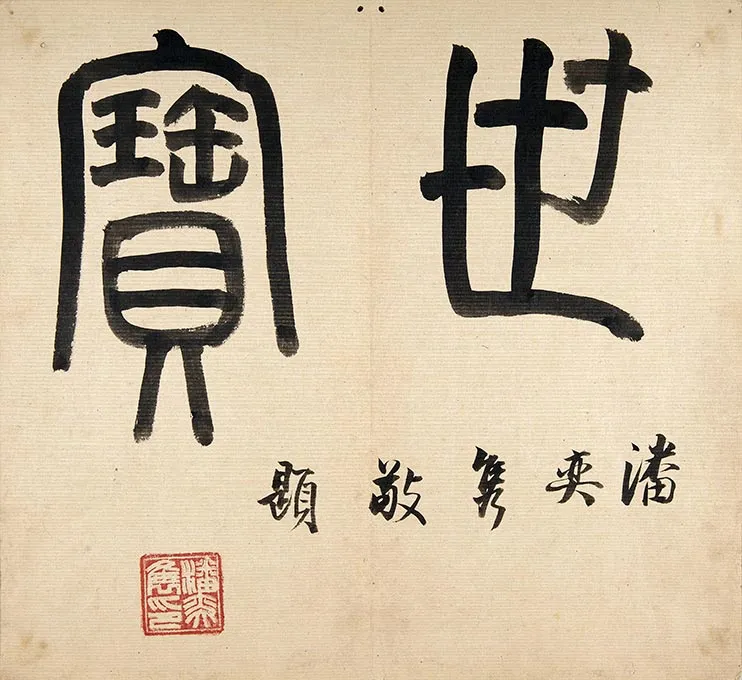 世寶
潘奕隽敬題
潘奕雋印